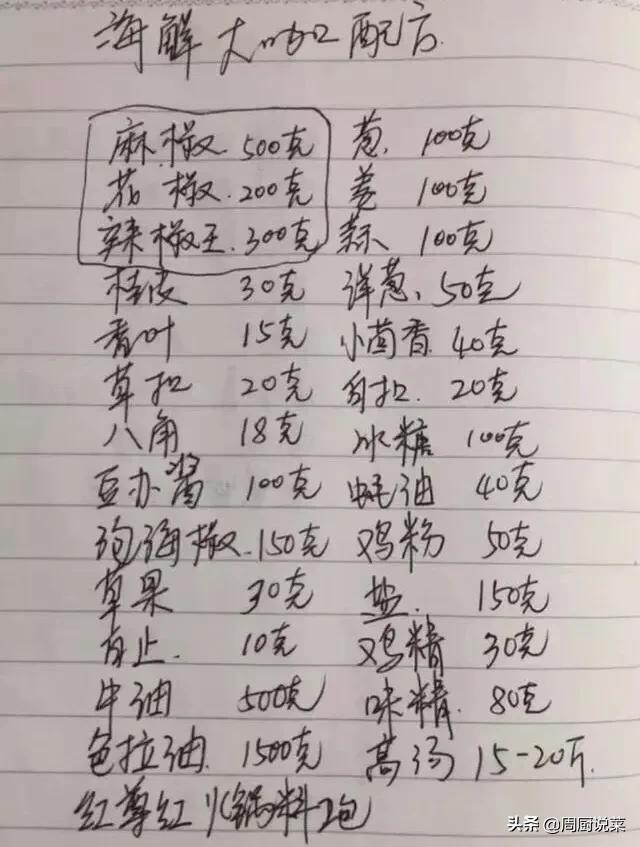 海鲜大咖配方.
麻椒 500克 葱. 100克
花椒. 200克 姜 100克
辣椒王. 300克 蒜 100克
桂皮 30克 洋葱、50克
香叶 15克 小茴香 40克
草扣 20克 白扣. 20克
八角 18克 冰糖 100克
豆办酱 100克 蚝油 40克
泡海椒. 150克 鸡粉 50克
草果 30克 盐. 150克
白止. 10克 鸡精 30克
牛油 500克 味精. 80克
色拉油. 1500克 高汤 15-20斤.
红尊红火锅料2包
头条 @周厨说菜